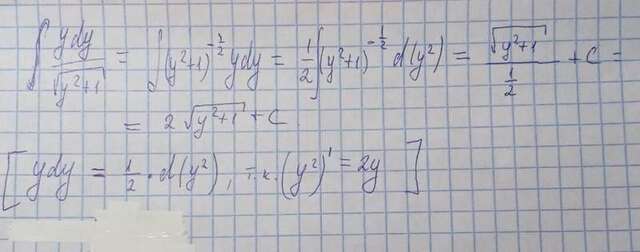 ∫ ydy/√(y²+1) = ∫(y²+1)^(-1/2) ydy = 1/2 ∫(y²+1)^(-1/2) d(y²) = √(y²+1) / (1/2) + C =
= 2√(y²+1) + C
[ ydy = 1/2 · d(y²), т.к. (y²)' = 2y ]